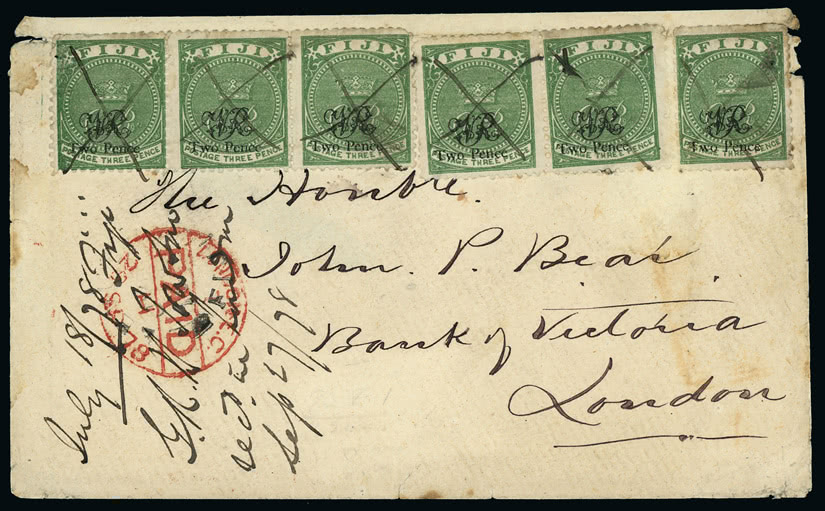 FIJI FIJI FIJI FIJI FIJI FIJI
VR VR VR VR VR VR
Two Pence. Two Pence. Two Pence. Two Pence. Two Pence. Two Pence.
POSTAGE THREE PENCE POSTAGE THREE PENCE POSTAGE THREE PENCE POSTAGE THREE PENCE POSTAGE THREE PENCE POSTAGE THREE PENCE
The Honble.
John. P. Bear
Bank of Victoria
London
July 18/78
Sep 27/78
PAID
78